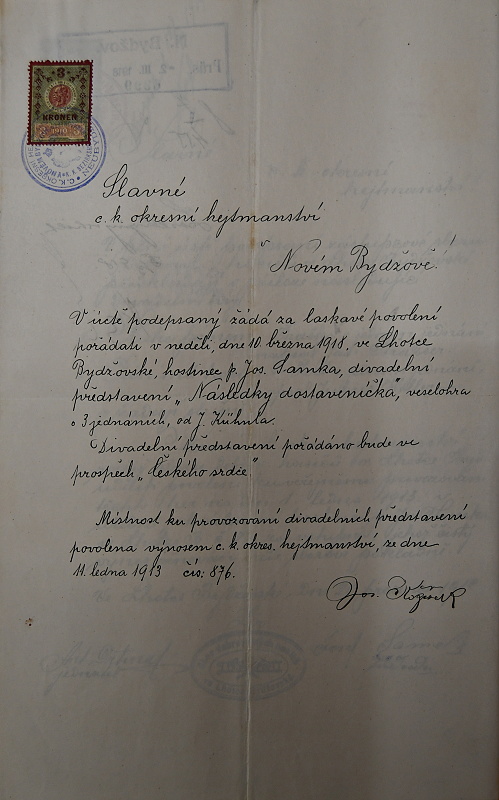 3
KRONEN
1910
Slavné
c. k. okresní hejtmanství
v
Novém Bydžově!
V úctě podepsaný žádá za laskavé povolení
pořádati v neděli, dne 10. března 1918, ve Lhotce
Bydžovské, hostinec p. Jos. Samka, divadelní
představení „Následky dostaveníčka", veselohra
o 3 jednáních, od J. Kühnla.
Divadelní představení pořádáno bude ve
prospěch „Českého srdce".
Místnost ku provozování divadelních představení
povolena výnosem c. k. okres. hejtmanství, ze dne
11. ledna 1913 čís: 876.
Jos.